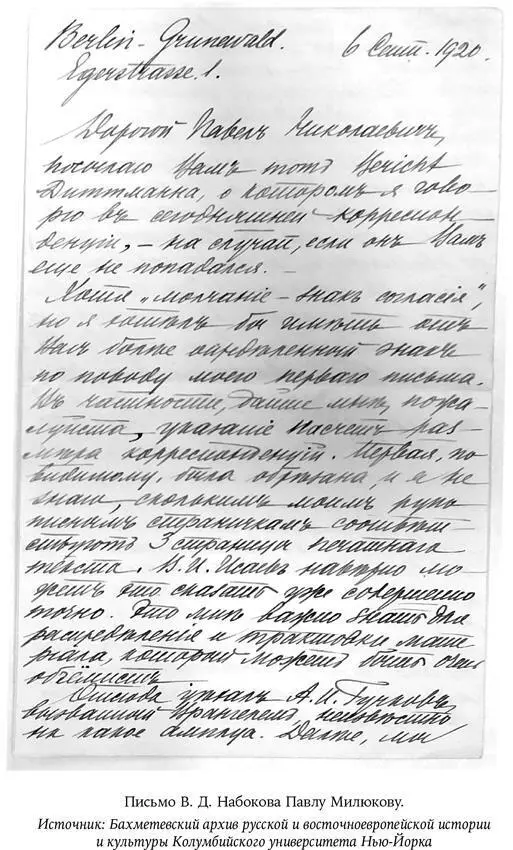 Berlin - Grunewald.
6 Сент. 1920.
Egerstrasse 1.
Дорогой Павелъ Николаевичъ,
посылаю Вамъ тотъ Bericht
Диттманна, о которомъ я гово-
рю въ сегодняшней корреспон-
денцiи, – на случай, если онъ Вамъ
еще не попадался. –
Хотя „молчанiе – знакъ согласiя“,
но я бы имѣть отъ
Васъ болѣе опредѣленный знакъ
по поводу моего перваго письма.
Въ частности, дайте мнѣ, пожа-
луйста, указанiе насчетъ раз-
мѣра корреспонденцiй. Первая, по
видимому, была обрѣзана, и я не
знаю, сколькимъ моимъ руко
писнымъ страничкамъ соотвѣт
ствуютъ 3 страницы печатнаго
текста. В. И. Исаевъ навѣрно мо
жетъ это сказать уже совершенно
точно. Это мнѣ важно знать для
распредѣленiя и трактовки мате
рiала, который можетъ быть очень
объёмистъ
Отсюда уѣхалъ А. И. Гучковъ,
вызванный Врангелемъ неизвѣстно
на какое амплуа. Далѣе, мы
Письмо В. Д. Набокова Павлу Милюкову.
Источник: Бахметевский архив русской и восточноевропейской истории
и культуры Колумбийского университета Нью-Йорка